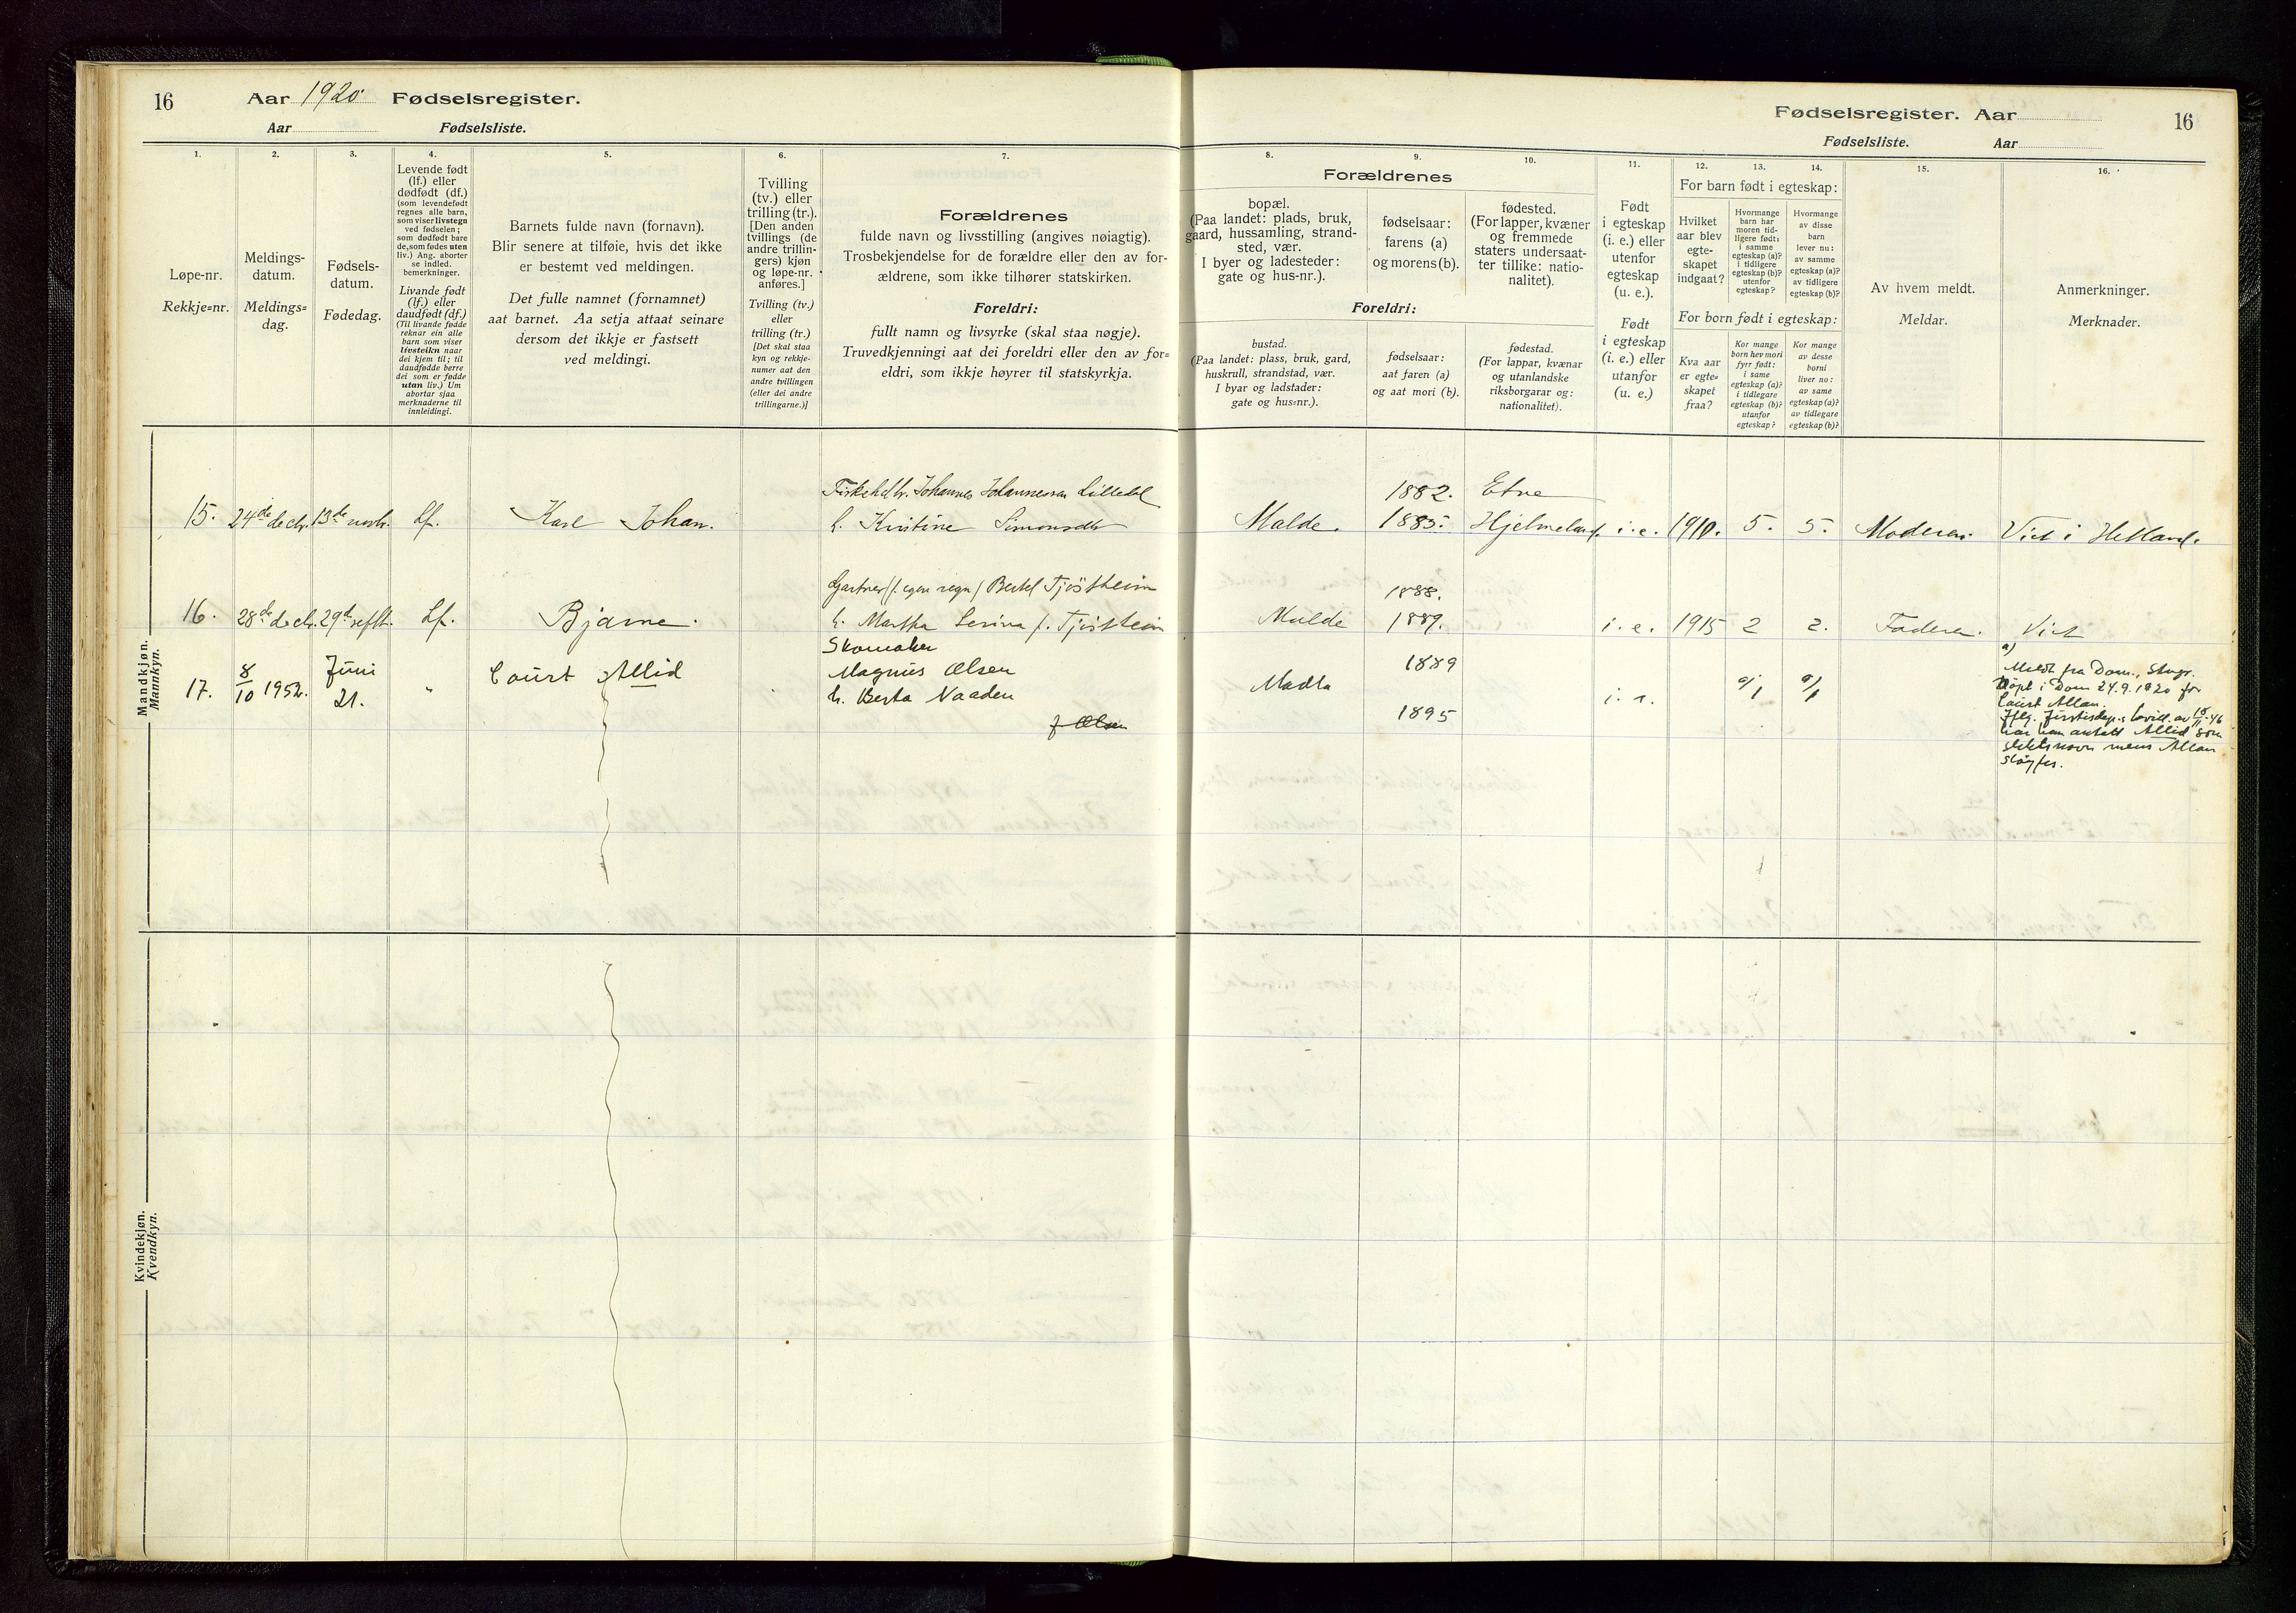 16
Aar 1920 Fødselsregister.
Aar Fødselsliste.
1.
Løpe-nr.
Rekkje=nr.
2.
Meldings-
datum.
Meldings=
dag.
3.
Fødsels-
datum.
Fødedag.
4.
Levende født
(lf.) eller
dødfødt (df.)
(som levendefødt
regnes alle barn,
som viser livstegn
ved fødselen;
som dødfødt bare
de, som fødes uten
liv.) Ang. aborter
se indled.
bemerkninger.
Livande født
(lf.) eller
daudfødt (df.)
(Til livande fødde
reknar ein alle
barn som viser
livsteikn naar
dei kjem til; til
daudfødde berre
dei som er fødde
utan liv.) Um
abortar sjaa
merknaderne til
innleidingi.
5.
Barnets fulde navn (fornavn).
Blir senere at tilføie, hvis det ikke
er bestemt ved meldingen.
Det fulle namnet (fornamnet)
aat barnet. Aa setja attaat seinare
dersom det ikkje er fastsett
ved meldingi.
6.
Tvilling
(tv.) eller
trilling (tr.).
[Den anden
tvillings (de
andre trillin-
gers) kjøn
og løpe-nr.
anføres.]
Tvilling (tv.)
eller
trilling (tr.)
[Det skal staa
kyn og rekkje-
numer aat den
andre tvillingen
(eller dei andre
trillingarne.)]
7.
Forældrenes
fulde navn og livsstilling (angives nøiagtig).
Trosbekjendelse for de forældre eller den av for-
ældrene, som ikke tilhører statskirken.
Foreldri:
fullt namn og livsyrke (skal staa nøgje).
Truvedkjenningi aat dei foreldri eller den av for=
eldri, som ikkje høyrer til statskyrkja.
Mandkjøn.
Mannkyn.
15. 24de decbr. 13de novbr. Lf. Karl Johan.
Johannes Johannessen Lilledal
h. Kristine Simonsdtr
16. 28de decbr. 29de septbr. Lf. Bjarne.
Gartner (f. egen regn) Bertel Tjøstheim
h. Martha Serina f. Tjøstheim
17. 8/10 1952. Juni 21. " Court Allid
Skomaker
Magnus Olsen
h. Berta Naaden
f. Olsen
Kvindekjøn.
Kvendkyn.
Fødselsregister. Aar 16
Fødselsliste. Aar
Forældrenes
8.
bopæl.
(Paa landet: plads, bruk,
gaard, hussamling, strand-
sted, vær.
I byer og ladesteder:
gate og hus-nr.).
9.
fødselsaar:
farens (a)
og morens (b).
10.
fødested.
(For lapper, kvæner
og fremmede
staters undersaat-
ter tillike: natio-
nalitet).
Foreldri:
bustad.
(Paa landet: plass, bruk, gard,
huskrull, strandstad, vær.
I byar og ladstader:
gate og hus=nr.).
fødselsaar:
aat faren (a)
og aat mori (b).
fødestad.
(For lappar, kvænar
og utanlandske
riksborgarar og:
nationalitet).
11.
Født
i egteskap
(i. e.) eller
utenfor
egteskap
(u. e.).
Født
i egteskap
(i. e.) eller
utanfor
(u. e.)
12. 13. 14.
For barn født i egteskap:
Hvilket
aar blev
egte-
skapet
indgaat?
Hvormange
barn har
moren tid-
ligere født:
i samme
egteskap (a)?
i tidligere
egteskap (b)?
utenfor
egteskap?
Hvormange
av disse
barn
lever nu:
av samme
egteskap (a)?
av tidligere
egteskap (b)?
For born født i egteskap:
Kva aar
er egte=
skapet
fraa?
Kor mange
born hev mori
fyrr født:
i same
egteskap (a)?
i tidlegare
egteskap (b)?
utanfor
egteskap?
Kor mange
av desse
borni
liver no:
av same
egteskap (a)?
av tidlegare
egteskap (b)?
15.
Av hvem meldt.
Meldar.
16.
Anmerkninger.
Merknader.
1882. Etne
Malde. 1885. Hjelmeland. i. e. 1910. 5. 5. Moderen. Viet i Hetland.
1888.
Malde 1889. i. e. 1915 2 2. Faderen. Viet
1889
Madla i. e. a/1 a/1
1895
a)
Meldt fra Dom., Stvgr.
Døpt i Dom 24.9.1920 for
Court Allan.
Iflg. Justisdep.s bevill. av 18/11-46
har han antatt Allid som
slektsnavn mens Allan
sløyfes.